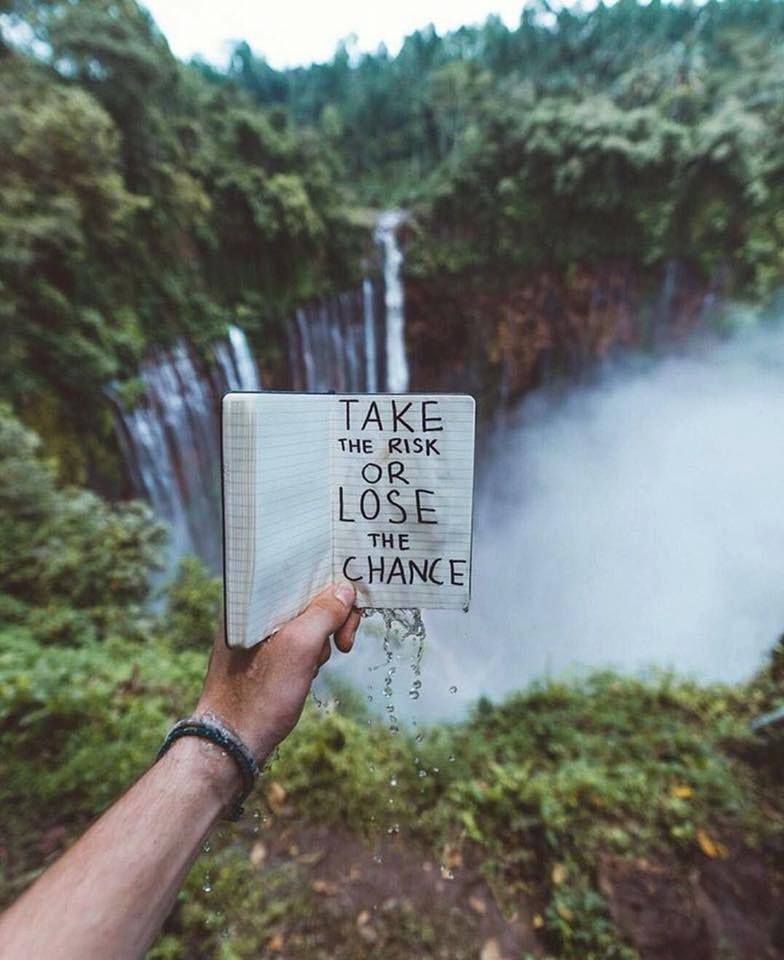 TAKE
THE RISK
OR
LOSE
THE
CHANCE